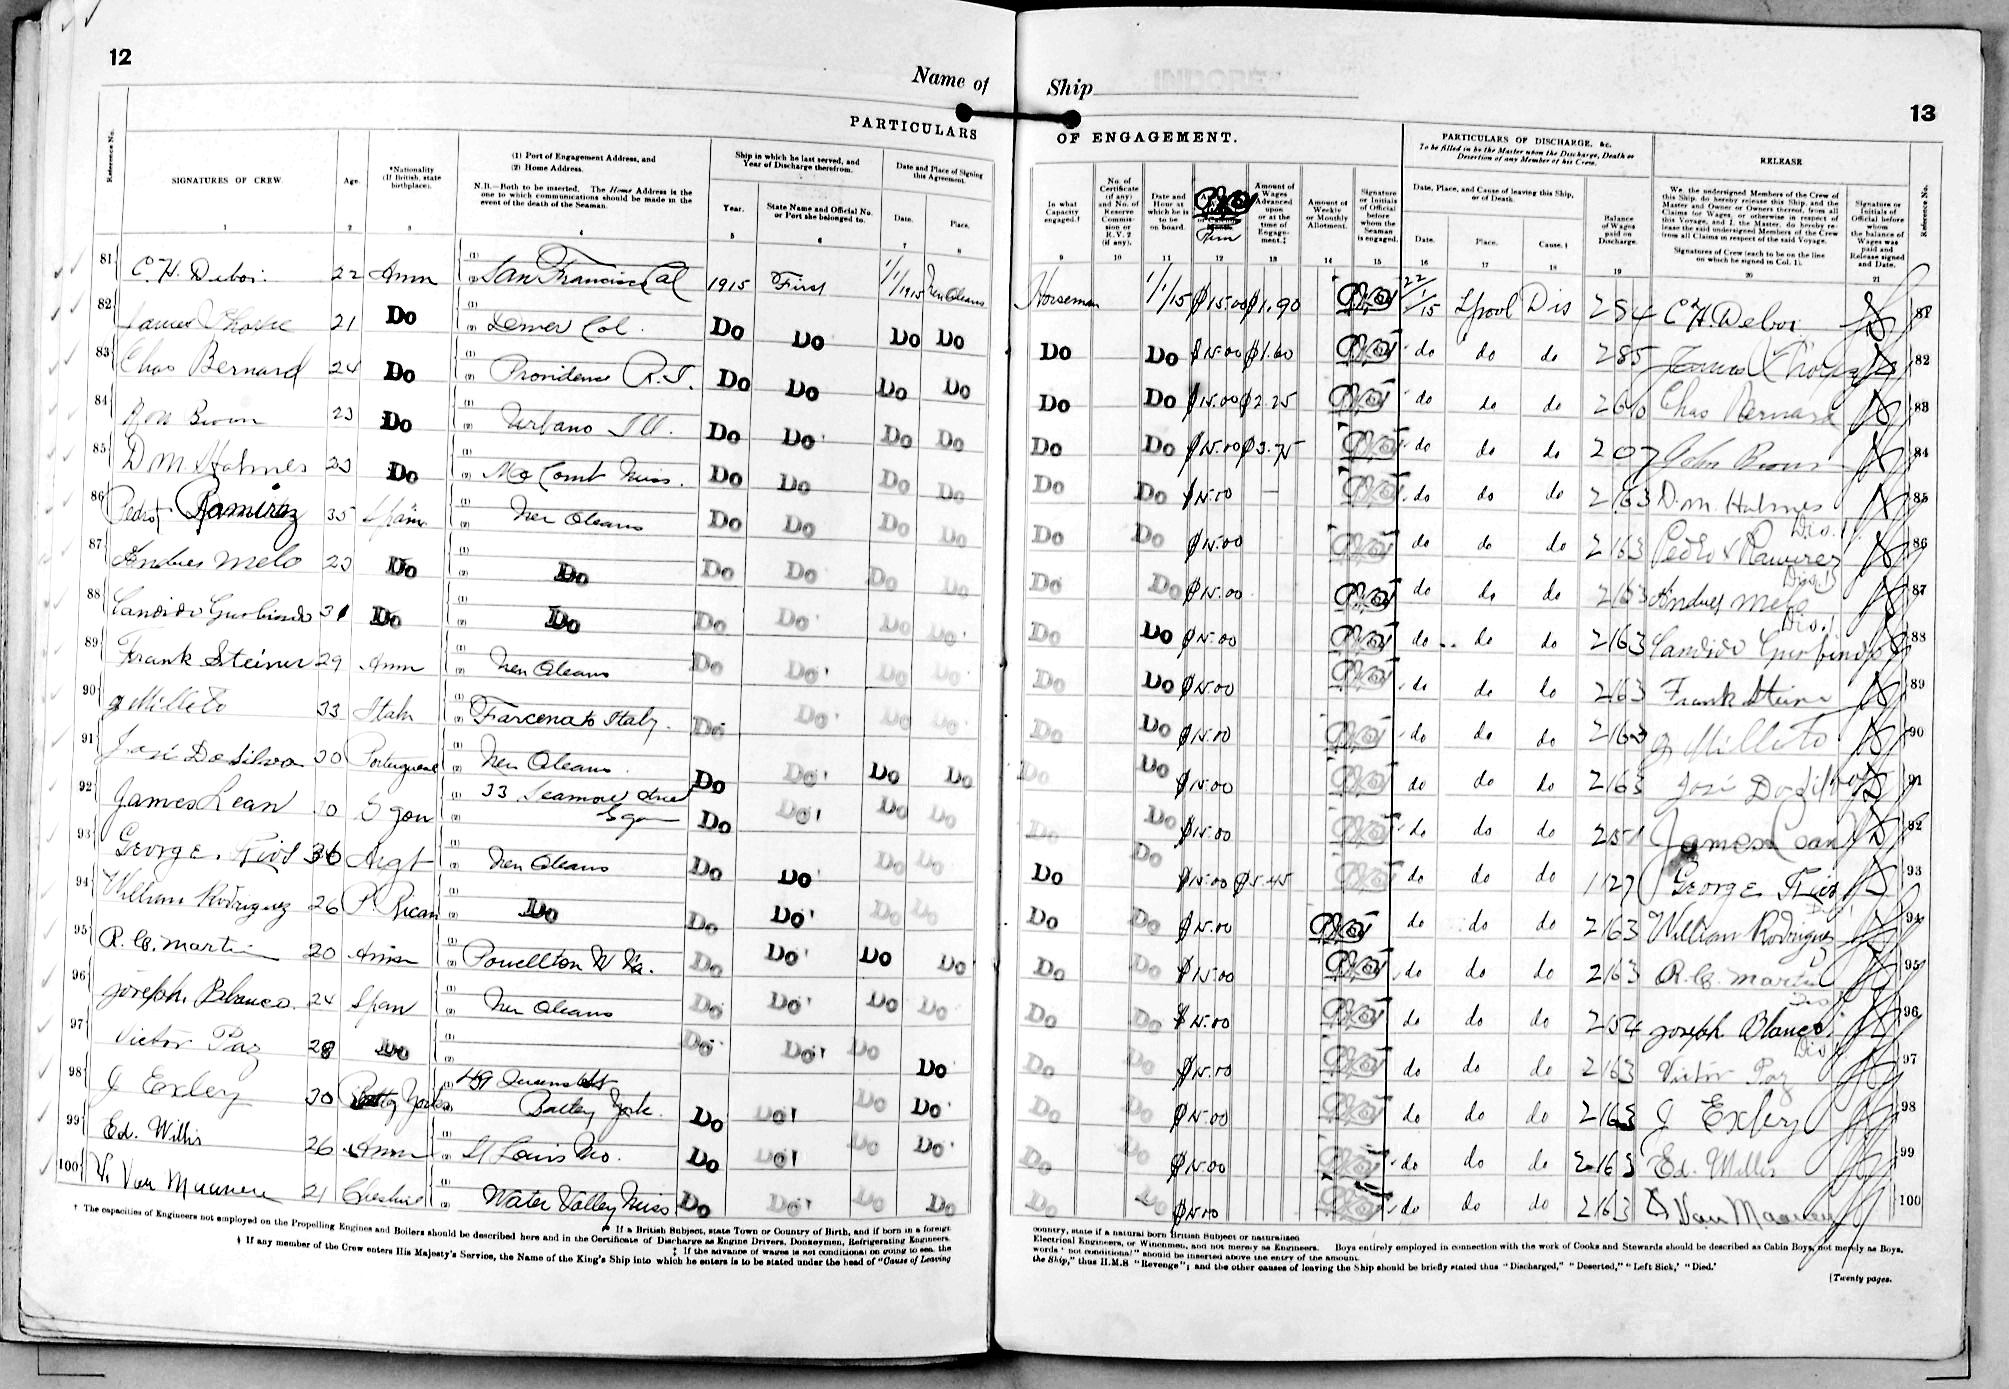 12
Name of
Ship
INDORE
13
PARTICULARS
OF ENGAGEMENT.
PARTICULARS OF DISCHARGE, &c.
To be filled in by the Master upon the Discharge, Death or Desertion of any Member of his Crew.
RELEASE
Reference No.
SIGNATURES OF CREW.
Age.
*Nationality (If British, state birthplace).
(1) Port of Engagement Address, and
(2) Home Address.
N.B.—Both to be inserted. The Home Address is the one to which communications should be made in the event of the death of the Seaman.
Ship in which he last served, and Year of Discharge therefrom.
Year.
State Name and Official No. or Port she belonged to.
Date and Place of Signing this Agreement.
Date.
Place.
In what Capacity engaged.†
No. of Certificate (if any) and No. of Reserve Commission or R.V.2 (if any).
Date and Hour at which he is to be on board.
Amount of Wages Advanced upon or at the time of Engagement.‡
Amount of Weekly or Monthly Allotment.
Signature or Initials of Official before whom the Seaman is engaged.
Date, Place, and Cause of leaving this Ship, or of Death.
Date.
Place.
Cause.†
Balance of Wages paid on Discharge.
We, the undersigned Members of the Crew of this Ship, do hereby release this Ship, and the Master and Owner or Owners thereof, from all Claims for Wages, or otherwise in respect of this Voyage, and I, the Master, do hereby release the said undersigned Members of the Crew from all Claims in respect of the said Voyage.
Signatures of Crew (each to be on the line on which he signed in Col. 1).
Signature or Initials of Official before whom the balance of Wages was paid and Release signed and Date.
Reference No.
1 2 3 4 5 6 7 8 9 10 11 12 13 14 15 16 17 18 19 20 21
81 C. H. Deboi 22 Amn (1) (2) San Francisco Cal 1915 First 1/1/1915 New Orleans Horseman 1/1/15 $15.00 $1.90 22/1/15 Lpool Dis 2 84 C. H. Deboi 81
82 James 21 Do (1) (2) Denver Col. Do Do Do Do Do Do $15.00 $1.60 do do do 2 85 James 82
83 Chas Bernard 24 Do (1) (2) Providence R.I. Do Do Do Do Do Do $15.00 $2.25 do do do Chas Bernard 83
84 Brown 23 Do (1) (2) Urbana Ill. Do Do Do Do Do Do $15.00 $3.75 do do do 2 07 John Brown 84
85 D M Holmes 23 Do (1) (2) Mc Comb Miss. Do Do Do Do Do Do $15.00 — do do do 2 163 D. M. Holmes 85
86 Pedro Ramirez 35 Spain (1) (2) New Orleans Do Do Do Do Do Do $15.00 do do do 2 163 Pedro Ramirez 86
87 Andres Melo 23 Do (1) (2) Do Do Do Do Do Do Do $15.00 do do do 2 163 Andres Melo 87
88 Candido 31 Do (1) (2) Do Do Do Do Do Do Do $15.00 do do do 2 163 Candido 88
89 Frank Steiner 29 Amn (1) (2) New Orleans Do Do Do Do Do Do $15.00 do do do 2 163 Frank Steiner 89
90 G Milleto 33 Italn (1) (2) Italy. Do Do Do Do Do Do $15.00 do do do 2 163 G Milleto 90
91 José Da Silva 30 Portuguese (1) (2) New Orleans. Do Do Do Do Do Do $15.00 do do do 2 163 José Da Silva 91
92 James Lean (1) 33 (2) Do Do Do Do Do Do $15.00 do do do 2 51 James Lean 92
93 George. Rios 36 Argt (1) (2) New Orleans Do Do Do Do Do Do $15.00 $5.45 do do do 1 127 George Rios 93
94 William Rodriguez 26 P. Rican (1) (2) Do Do Do Do Do Do Do $15.00 do do do 2 163 William Rodriguez 94
95 R. C. Martin 20 Amn (1) (2) Powellton W Va. Do Do Do Do Do Do $15.00 do do do 2 163 R. C. Martin 95
96 joseph Blanco. 24 Span (1) (2) New Orleans Do Do Do Do Do Do $15.00 do do do 2 54 joseph Blanco 96
97 Victor Paz 28 Do (1) (2) Do Do Do Do Do Do $15.00 do do do 2 163 Victor Paz 97
98 J Exley 30 Batley Yorks (1) 49 Queens St (2) Batley York. Do Do Do Do Do Do $15.00 do do do 2 163 J Exley 98
99 Ed. Willis 26 Amn (1) (2) St Louis Mo. Do Do Do Do Do Do $15.00 do do do 2 163 Ed. Willis 99
100 Van Maanen 21 Cheshire (1) (2) Water Valley Miss Do Do Do Do Do Do $15.00 do do do 2 163 Van Maanen 100
* If a British Subject, state Town or Country of Birth, and if born in a foreign country, state if a natural born British Subject or naturalised
† The capacities of Engineers not employed on the Propelling Engines and Boilers should be described here and in the Certificate of Discharge as Engine Drivers, Donkeymen, Refrigerating Engineers, Electrical Engineers, or Winchmen, and not merely as Engineers. Boys entirely employed in connection with the work of Cooks and Stewards should be described as Cabin Boys, not merely as Boys.
‡ If the advance of wages is not conditional on going to sea, the words 'not conditional' should be inserted above the entry of the amount.
† If any member of the Crew enters His Majesty's Service, the Name of the King's Ship into which he enters is to be stated under the head of "Cause of Leaving the Ship," thus H.M.S "Revenge"; and the other causes of leaving the Ship should be briefly stated thus "Discharged," "Deserted," "Left Sick,' "Died.'
[Twenty pages.